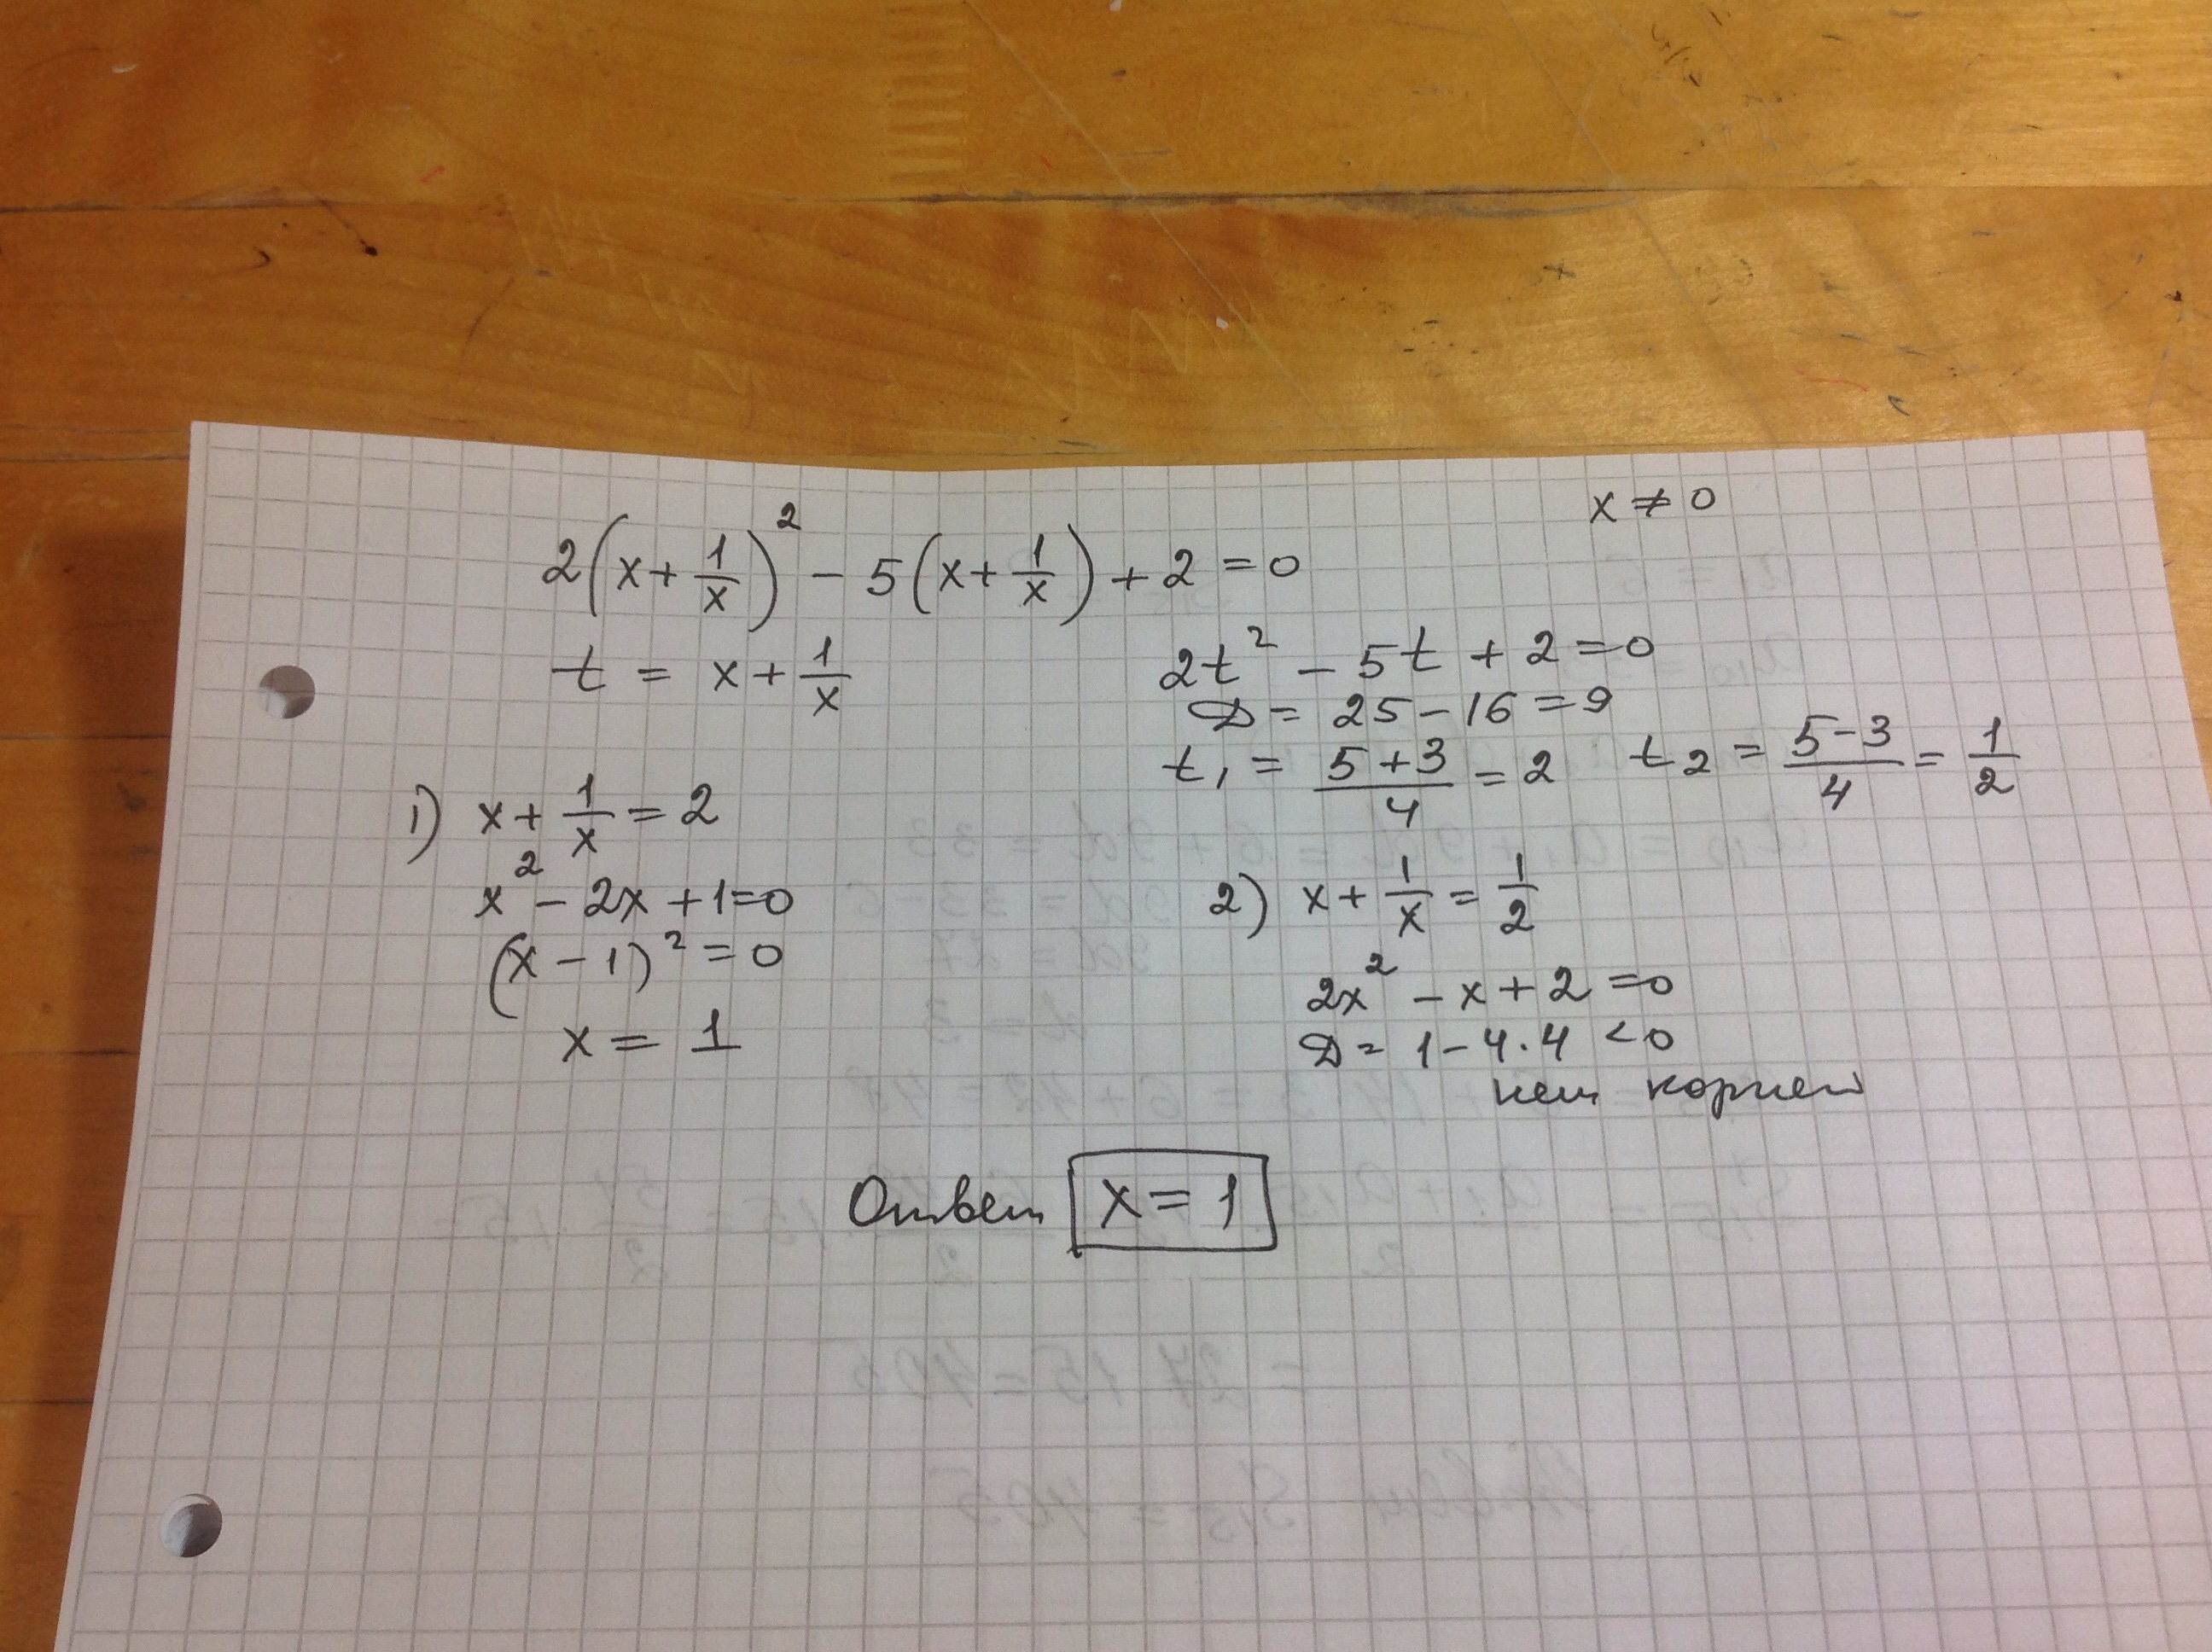 x ≠ 0
2(x + 1/x)² − 5(x + 1/x) + 2 = 0
t = x + 1/x
2t² − 5t + 2 = 0
D = 25 − 16 = 9
t₁ = (5 + 3)/4 = 2 t₂ = (5 − 3)/4 = 1/2
1) x + 1/x = 2
x² − 2x + 1 = 0
(x − 1)² = 0
x = 1
2) x + 1/x = 1/2
2x² − x + 2 = 0
D = 1 − 4·4 < 0
нет корней
Ответ x = 1